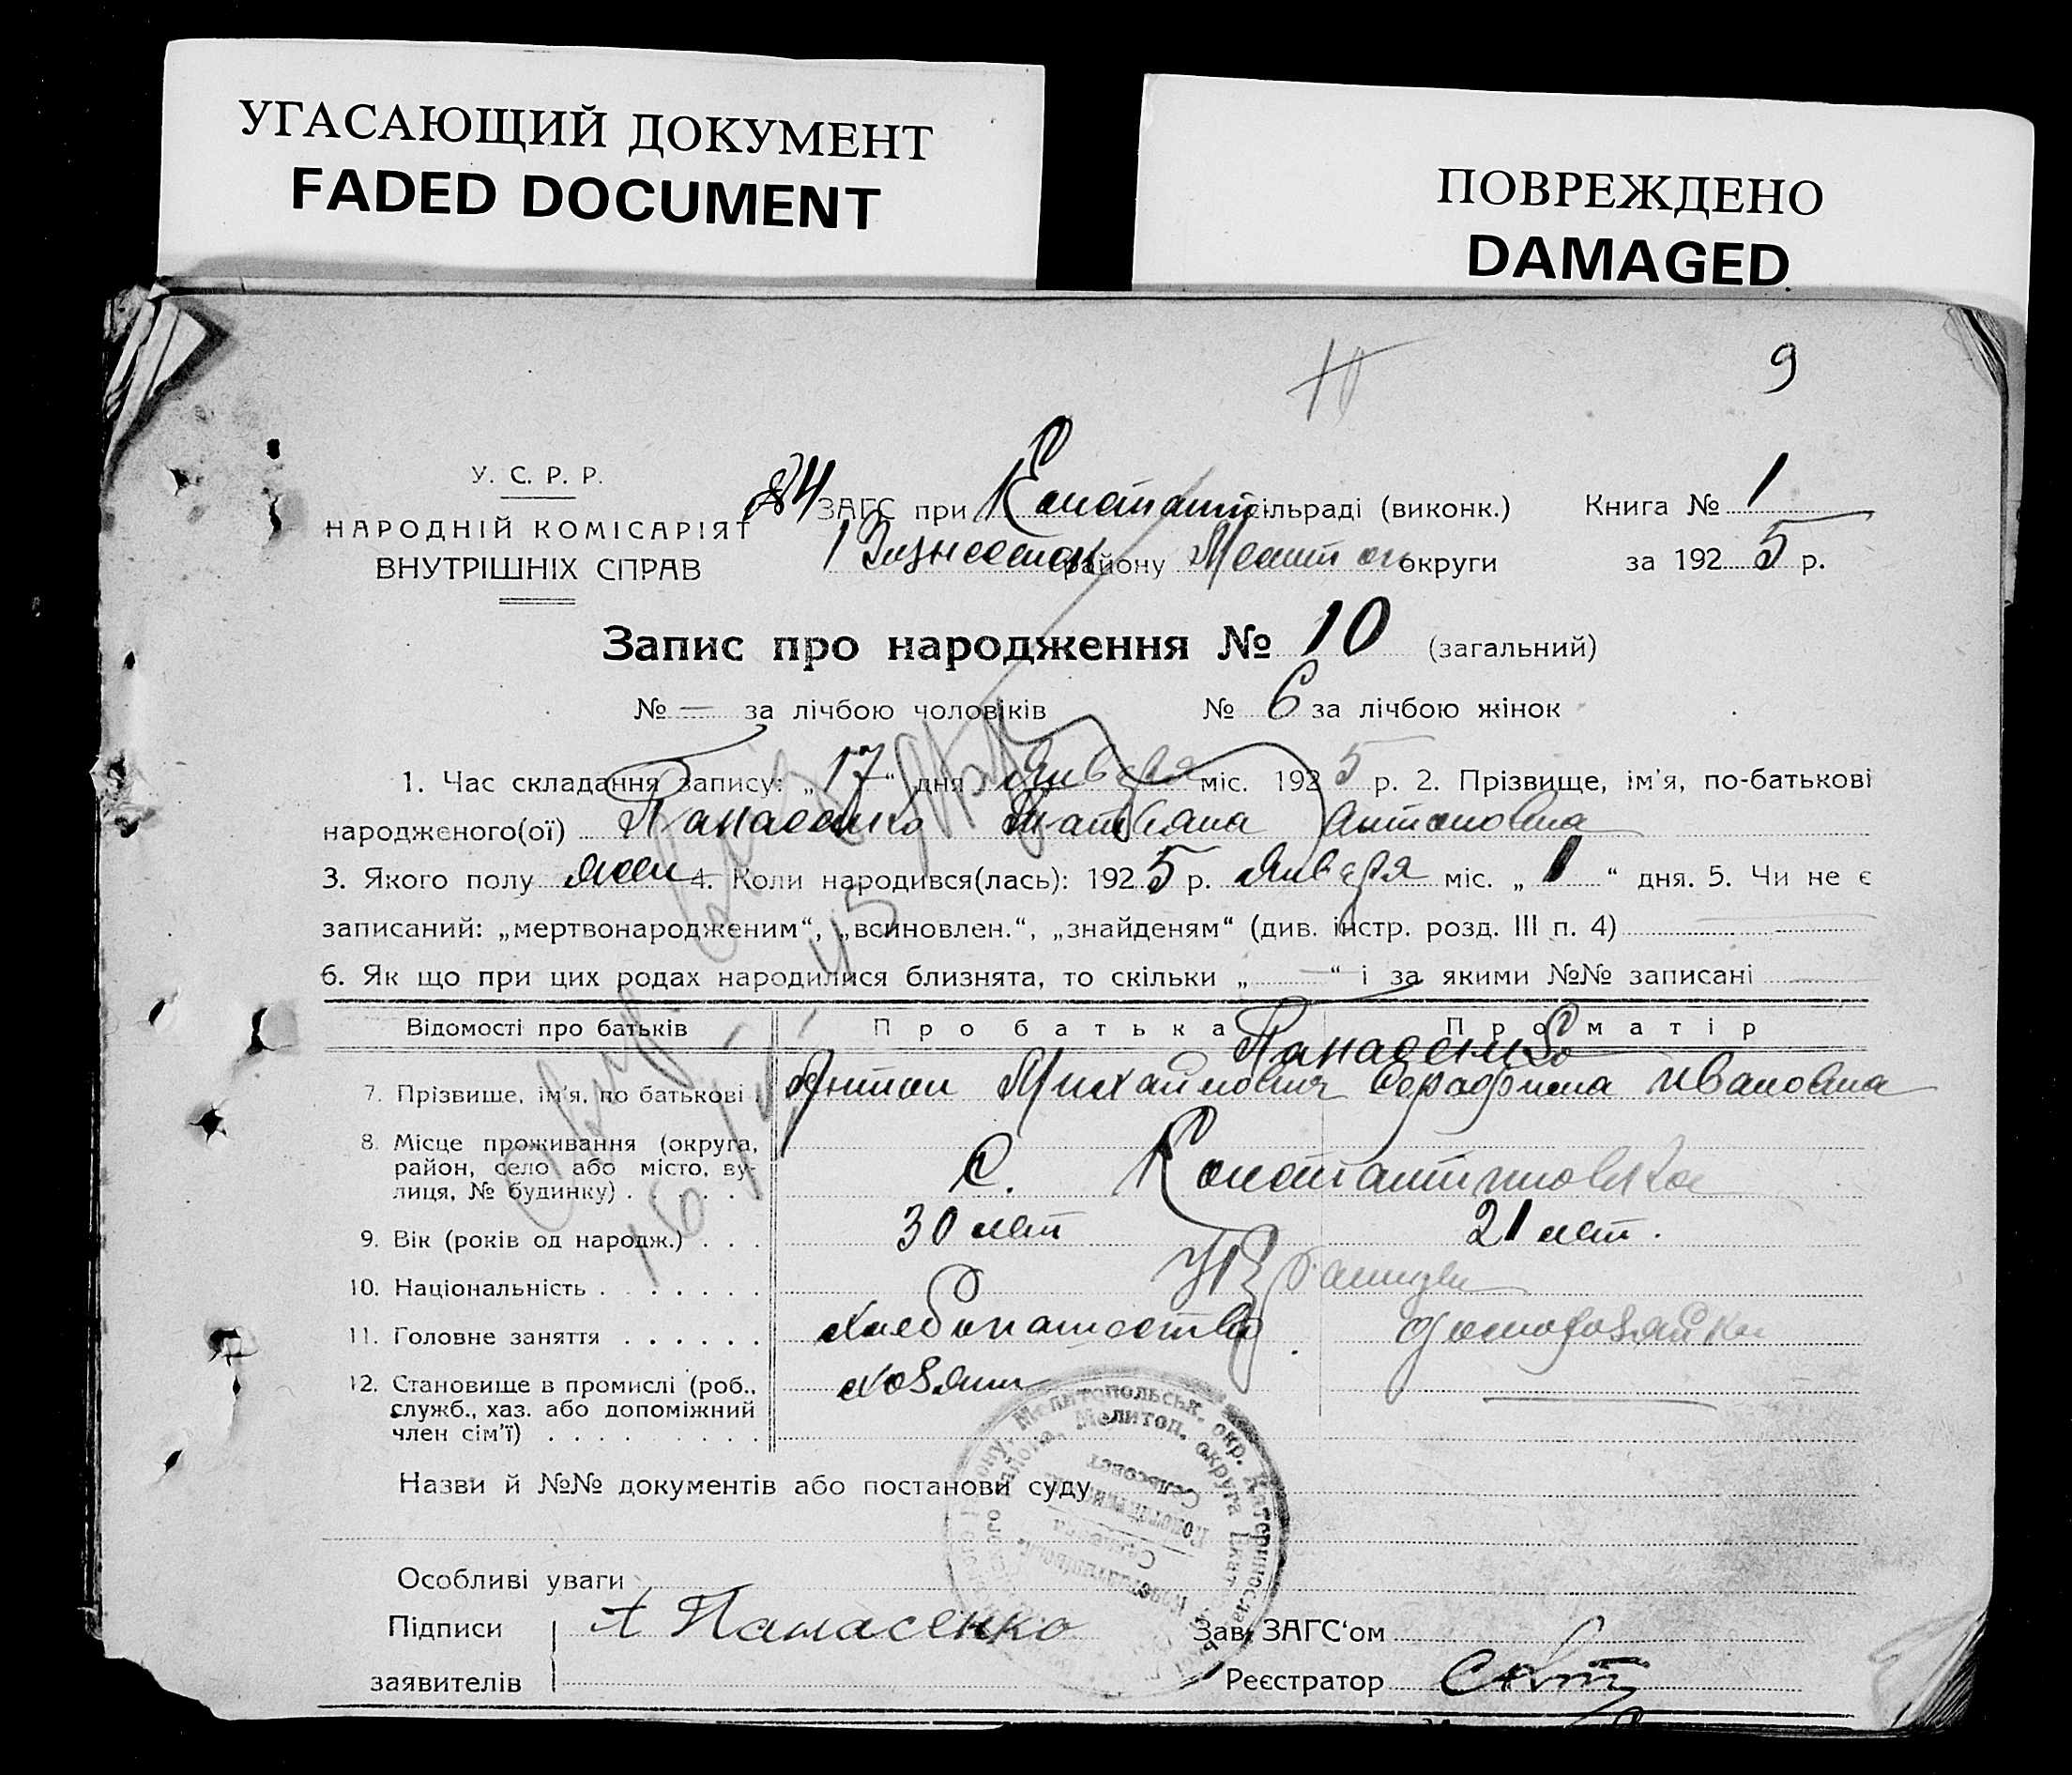 УГАСАЮЩИЙ ДОКУМЕНТ
FADED DOCUMENT
ПОВРЕЖДЕНО
DAMAGED
9
10
У. С. Р. Р.
НАРОДНІЙ КОМІСАРІЯТ
ВНУТРІШНІХ СПРАВ
84 ЗАГС при Констант сільраді (виконк.) Книга № 1
1 Вознесенск району Мелитоп округи за 1925 р.
Запис про народження № 10 (загальний)
№ — за лічбою чоловіків № 6 за лічбою жінок
1. Час складання запису: „17“ дня Января міс. 1925 р. 2. Прізвище, ім'я, по-батькові
народженого(ої) Панасенко Татьяна Антоновна
3. Якого полу жен 4. Коли народився(лась): 1925 р. Января міс. „1“ дня. 5. Чи не є
записаний: „мертвонародженим“, „всиновлен.“, „знайденям“ (див. інстр. розд. III п. 4)
6. Як що при цих родах народилися близнята, то скільки „ — “ і за якими №№ записані
Відомості про батьків Про батька Про матір
Панасенко
7. Прізвище, ім'я, по батькові Антон Михайлович Серафима Ивановна
8. Місце проживання (округа, район, село або місто, вулиця, № будинку) . . . . . с. Константиновка
9. Вік (років од народж.) . . . 30 лет 21 лет.
10. Національність . . . . . . . Украинцы
11. Головне заняття . . . . . . Хлебопашество домохозяйка
12. Становище в промислі (роб., служб., хаз. або допоміжний член сім'ї) . . . . . . . . . хозяин —
Назви й №№ документів або постанови суду
Особливі уваги
Підписи А Панасенко Зав. ЗАГС'ом
заявителів Реєстратор